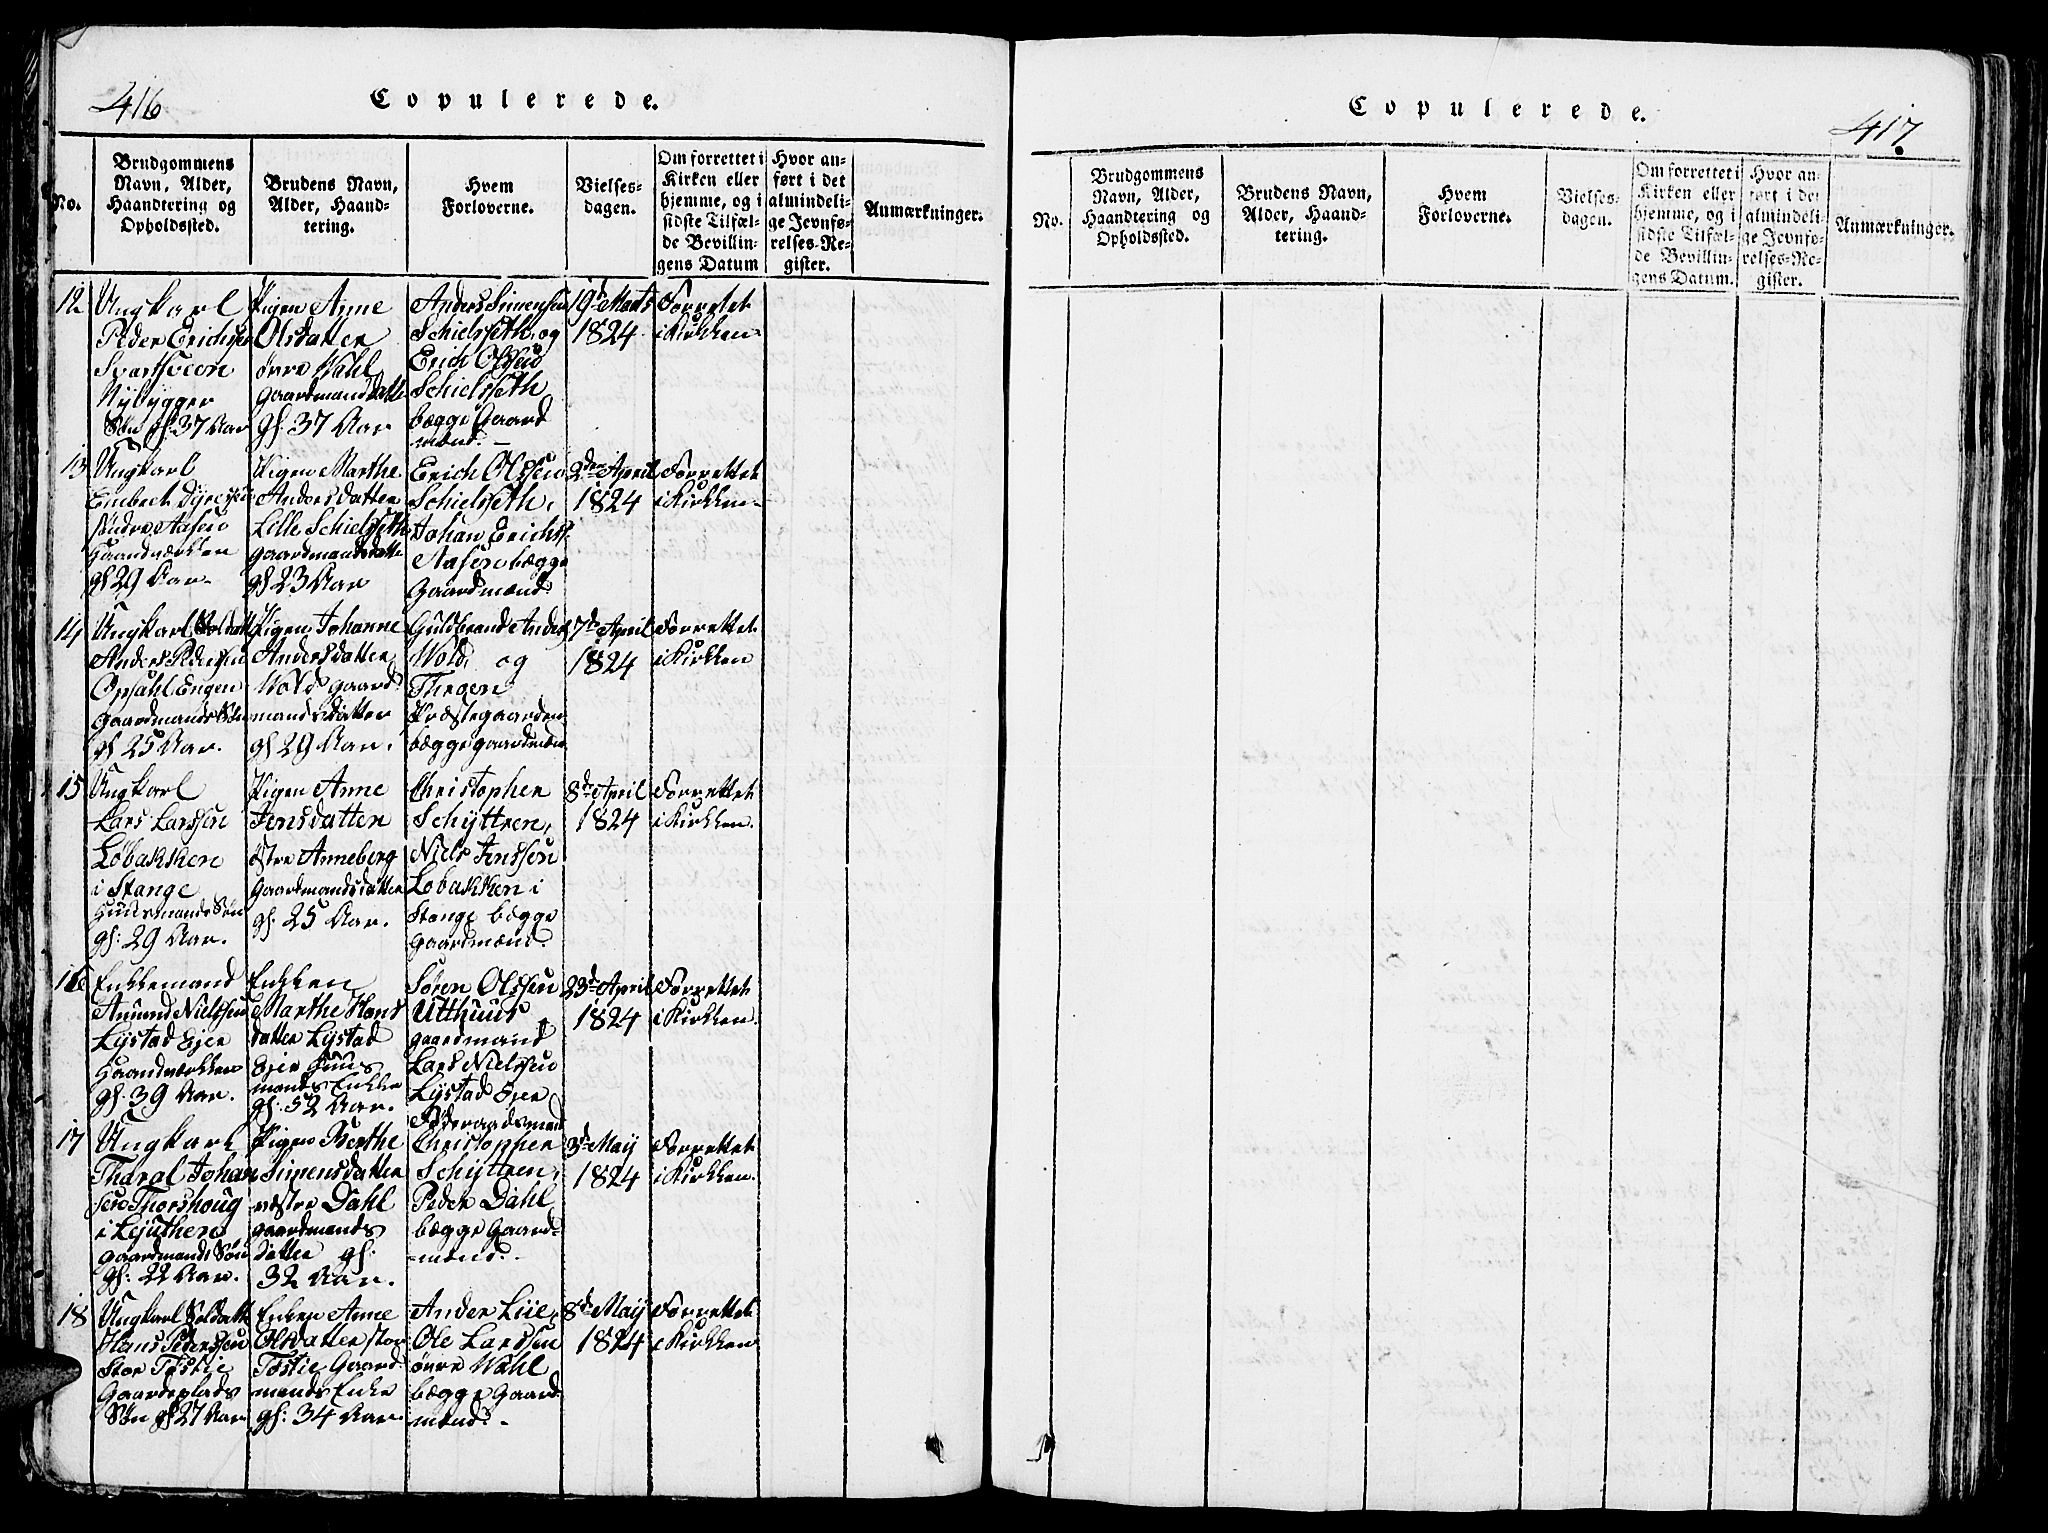 416
Copulerede.
No.
Brudgommens
Navn, Alder,
Haandtering og
Opholdssted.
Brudens Navn,
Alder, Haand-
tering.
Hvem
Forloverne.
Vielses-
dagen.
Om forrettet i
Kirken eller
hjemme, og i
sidste Tilfæl-
de Bevillin-
gens Datum
Hvor an-
ført i det
almindeli-
ge Jevnfø-
relses-Re-
gister.
Anmærkninger.
12
Ungkarl
Peder Erichsen
Nybygger
Søn gl: 37 Aar
Pigen Anne
Olsdatter
øvre Wahl
Gaardmandsdatter
gl: 37 Aar
Anders Simensen
Schielsseth, og
Erich Olssen
Schielsseth
bægge Gaard
mænd. —
19de Marts
1824.
Forretet
i Kirkken
13
Ungkarl
Embret Dyresen
Haandværkker
gl 29 Aar.
Pigen Marthe
Andersdatter
Lille Schielsseth
Gaardmandsdatter
gl 23 Aar
Erich Olssen
Schielsseth,
Johan Erichs:
Aasere bægge
Gaardmænd
2den April
1824
Forrettet
i Kirkken
14
Ungkarl Soldatt
Anders Pedersen
Opsahl Engen
Gaardmands Søn
gl 25 Aar.
Pigen Johanne
Andersdatter
Wold gaard
mandsdatter
gl 29 Aar.
Guldbrand Anders
Wold og
Præstegaarden
bægge gaardmænd
7de April
1824
Forrettet
i Kirkken
15
Ungkarl
Lars Larssen
Løbakken
i Stange
Huusmands Søn
gl: 29 Aar.
Pigen Anne
Jensdatter
østre Anneberg
Gaardmandsdatter
gl: 25 Aar.
Christopher
Schyttren,
Niels Jenssen
Løbakken i
Stange bægge
Gaardmænd.
8de April
1824
Forrettet
i Kirkken.
16
Enkkemand
Amund Nielssen
Lystad Ejer
Haandværkker
gl: 39 Aar.
Enkken
Marthe Hans
datter Lystad
Ejer Huus
mands Enkke
gl: 52 Aar.
Søren Olssen
Utthuus
gaardmand
Lars Nielssen
Lystad Ejer
Føderaadsmand
23de April
1824
Forrettet
i Kirkken.
17
Ungkarl
Tharal Johan
sen Thorshoug
i Lejuthen
gaardmands Søn
gl: 22 Aar.
Pigen Berthe
Simensdatter
vestre Dahl
gaardmands
datter gl:
32 Aar.
Christopher
Schyttren,
Peder Dahl
bægge Gaard-
-mænd.
3de Maij
1824
Forrettet
i Kirkken.
18
Ungkarl Soldatt
Hans Pederssen
Stor Tøstie
Gaardsplads
Søn gl 27 Aar
Enken Anne
Olsdatter Stor
Tøstie Gaard
mands Enke
gl: 34 Aar.
Ander Lie,
Ole Larssen
øvre Wahl
bægge Gaard
mænd. -
8de Maij
1824
Forrettet
i Kirkken
Copulerede.
417
No.
Brudgommens
Navn, Alder,
Haandtering og
Opholdssted.
Brudens Navn,
Alder, Haand-
tering.
Hvem
Forloverne.
Vielses-
dagen.
Om forrettet i
Kirken eller
hjemme, og i
sidste Tilfæl-
de Bevillin-
gens Datum.
Hvor an-
ført i det
almindeli-
ge Jevnfø-
relses-Re-
gister.
Anmærkninger.